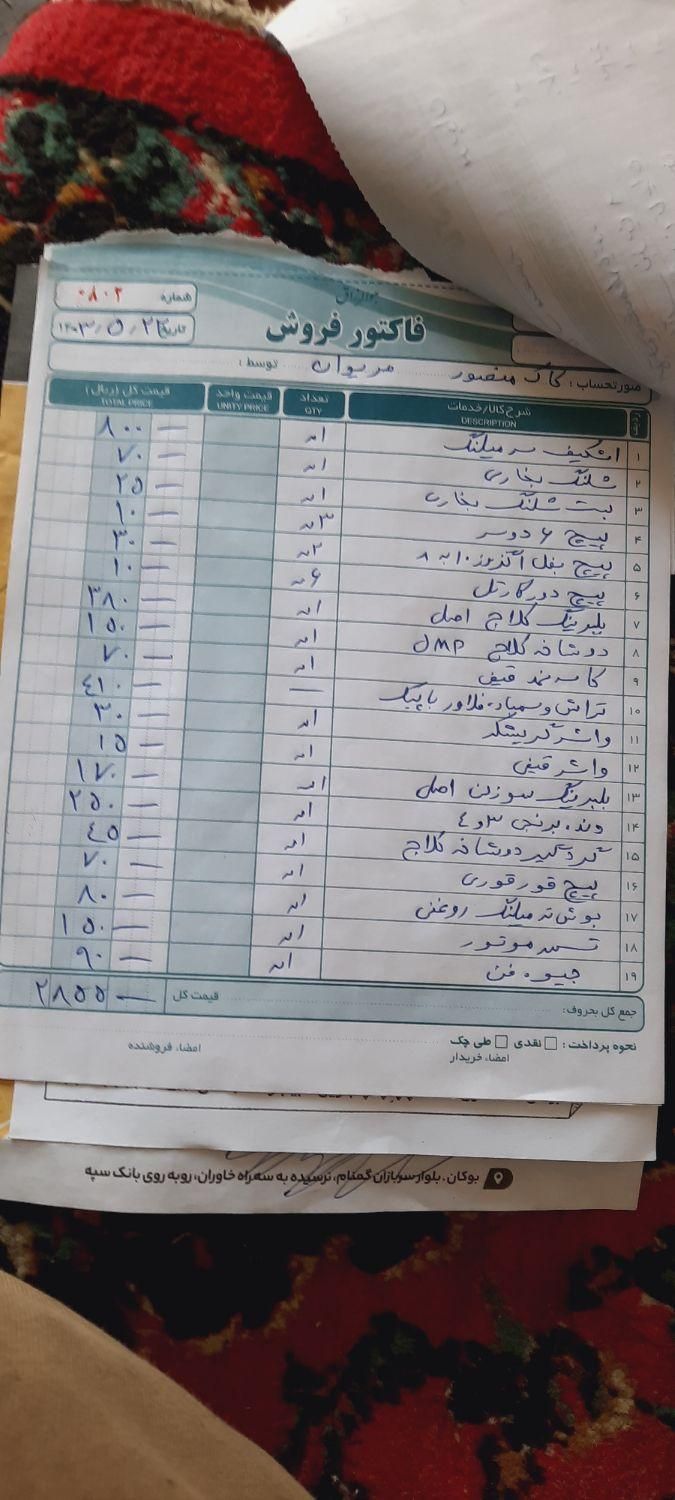 هوالرزاق
فاکتور فروش
شماره: ۰۸۰۲
تاریخ: ۱۴۰۳/۵/۲۲
صورتحساب: کاک منصور مریوان توسط:
ردیف شرح کالا/خدمات DESCRIPTION تعداد QTY قیمت واحد UNITY PRICE قیمت کل (ریال) TOTAL PRICE
۱ اشکیف سر میلنگ ۱ عد ۸۰۰ —
۲ شلنگ بخاری ۱ عد ۷۰ —
۳ بست شلنگ بخاری ۱ عد ۲۵ —
۴ پیچ ۶ دوسر ۳ عد ۱۰ —
۵ پیچ بغل اگزوز ۱۰ به ۸ ۲ عد ۳۰ —
۶ پیچ دور کارتل ۶ عد ۱۰ —
۷ بلبرینگ کلاج اصل ۱ عد ۳۸۰ —
۸ دوشاخه کلاج JMP ۱ عد ۱۵۰ —
۹ کاسه نمد قیف ۱ عد ۷۰ —
۱۰ تراش و سمباده فلاور با پیک — ۴۱۰ —
۱۱ واشر گریشگر ۱ عد ۳۰ —
۱۲ واشر قیفی ۱ عد ۱۵ —
۱۳ بلبرینگ سوزن اصل ۱ عد ۱۷۰ —
۱۴ دنده برنجی ۳و۴ ۱ عد ۲۵۰ —
۱۵ گردگیر دوشاخه کلاج ۱ عد ۴۵ —
۱۶ پیچ قورقوری ۱ عد ۷۰ —
۱۷ بوش ته میلنگ روغنی ۱ عد ۸۰ —
۱۸ تسمه موتور ۱ عد ۱۵۰ —
۱۹ جیوه فن ۱ عد ۹۰ —
جمع کل بحروف: قیمت کل ۲۸۵۵ —
نحوه پرداخت: نقدی طی چک
امضاء خریدار امضاء فروشنده
بوکان. بلوار سربازان گمنام، نرسیده به سه‌راه خاوران، روبه روی بانک سپه